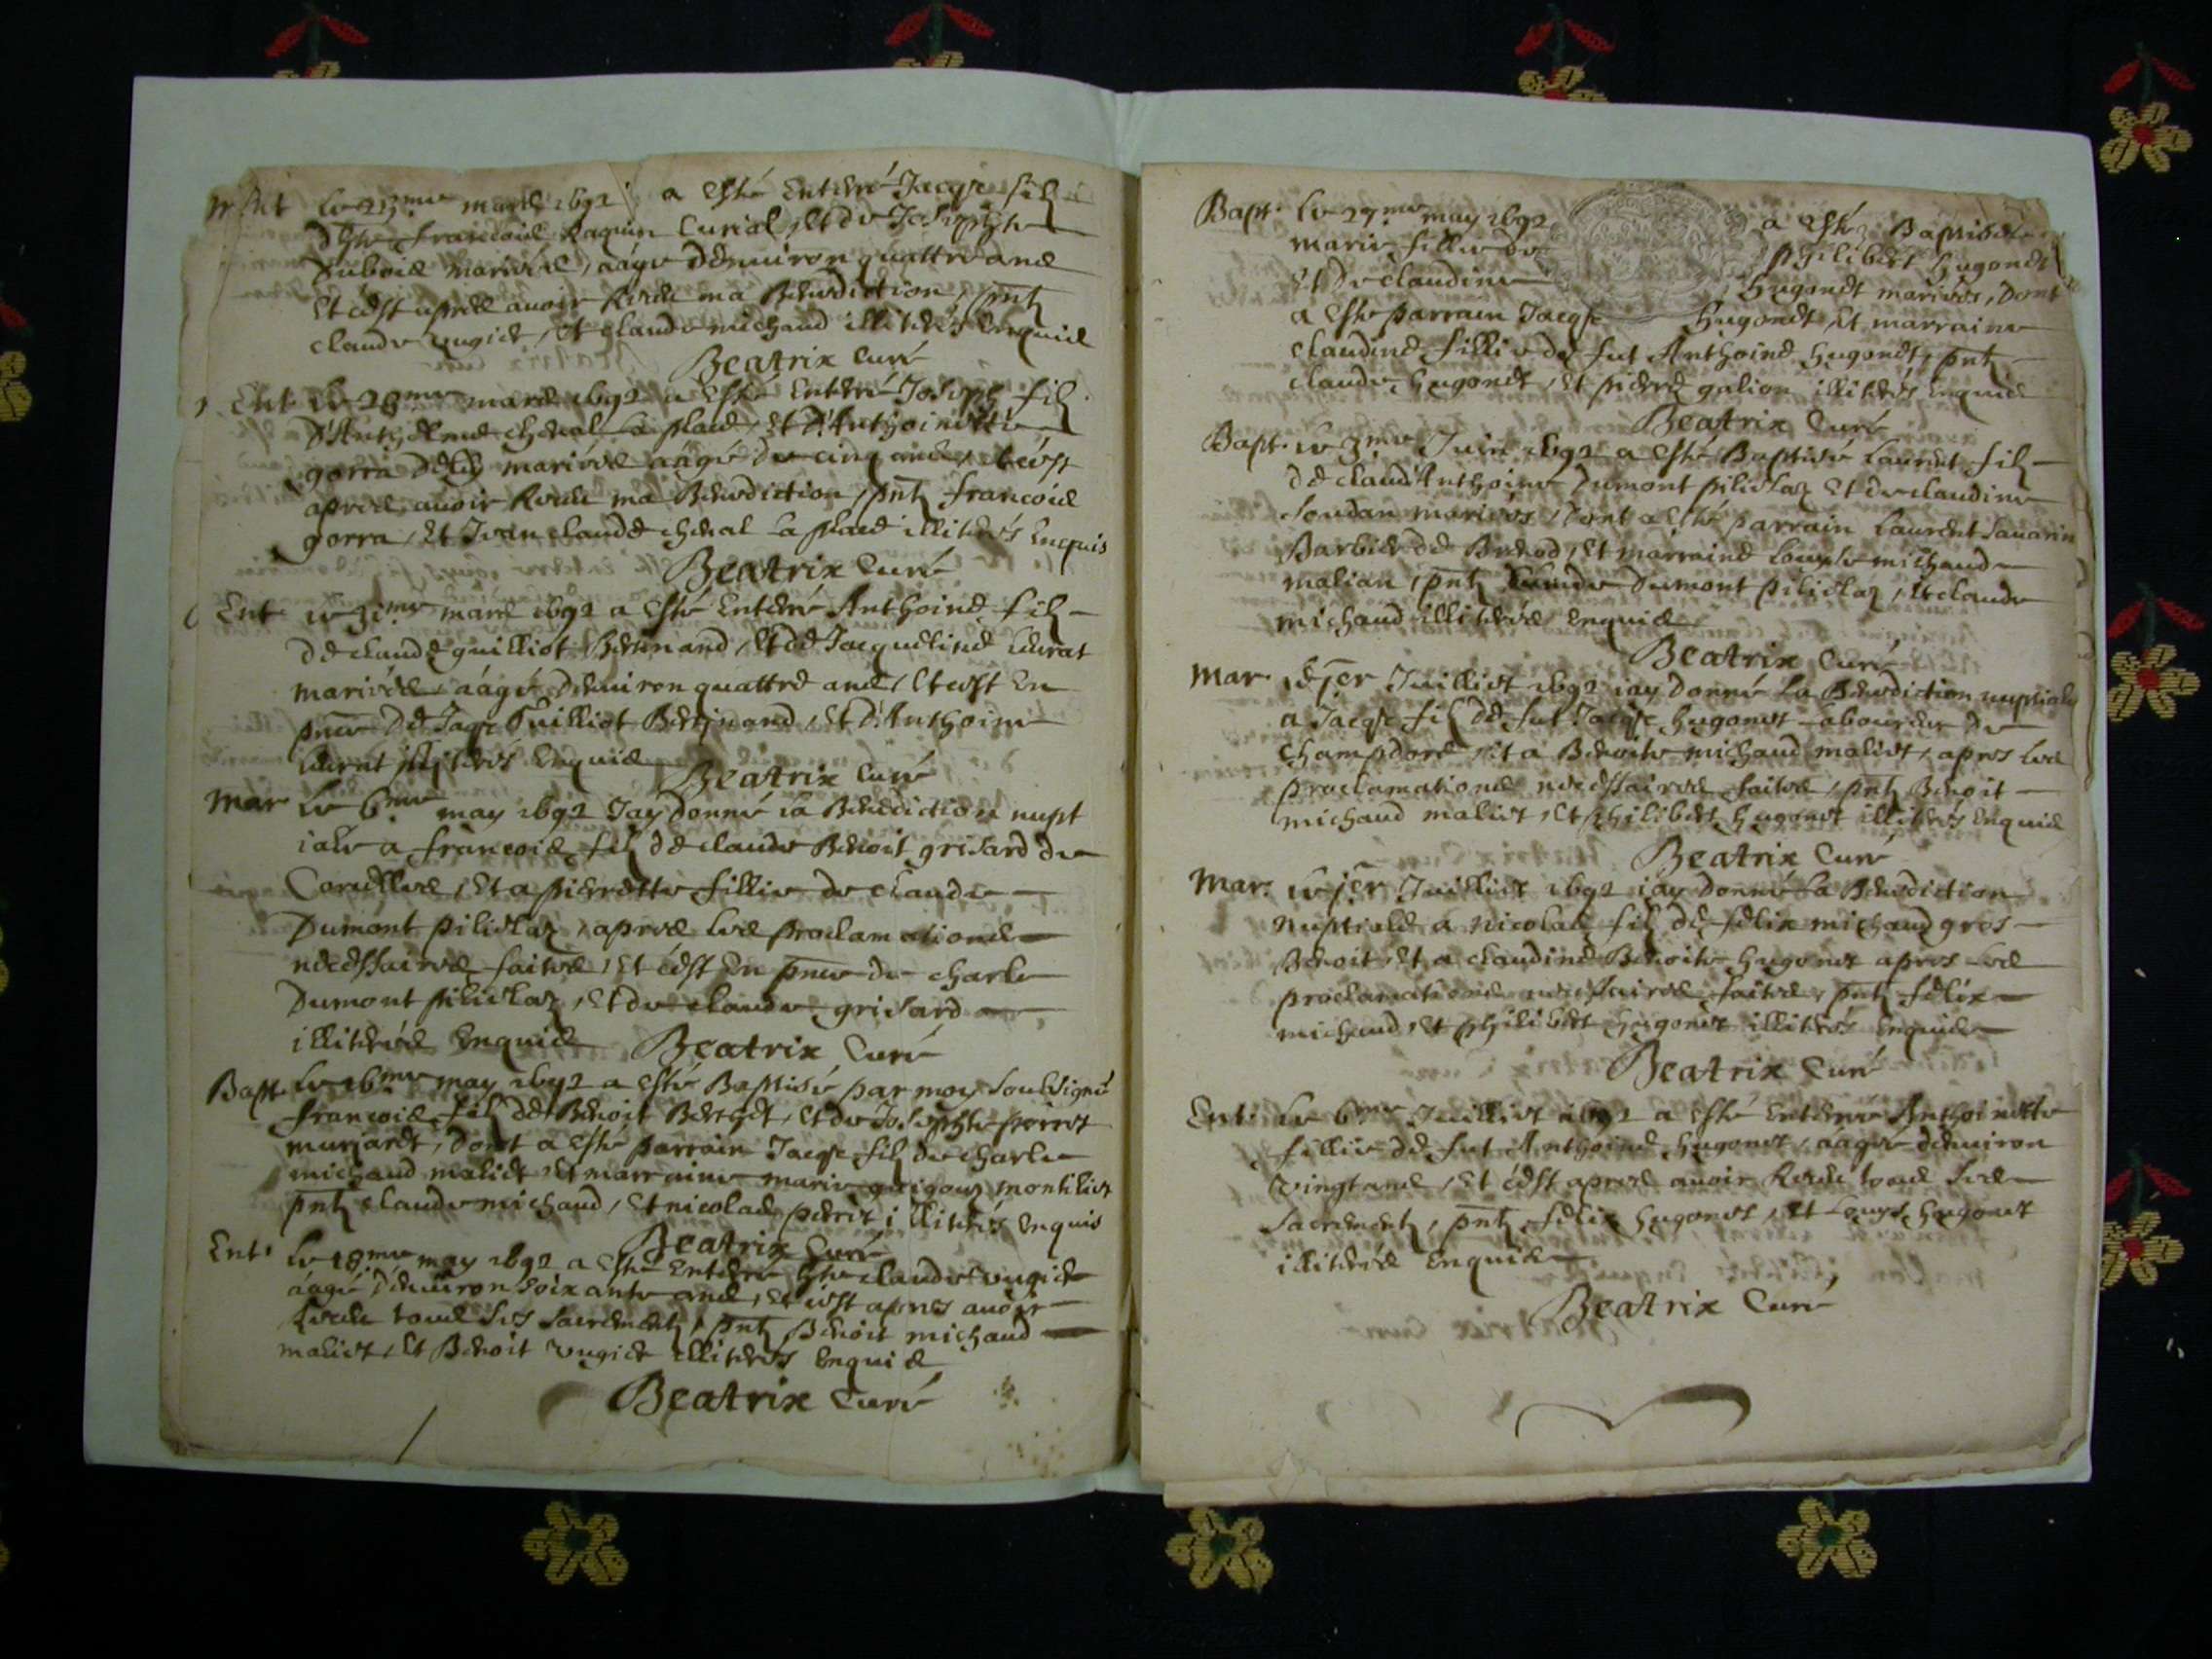 Ent le 23.me mars 1692 a esté Enterré Jacqse fils
d'hte francois Raquin Curial, Et de Josephte
Dubois mariées, aagé denuiron quattre ans
Et cest apres auoir Receu ma Benediction, pnts
claude Vugiet, Et claude michaud illiterés Enquis
Beatrix Curé
Ent le 28.me mars 1692 a esté Enterré Joseph fils
D'Anthelme cheual La place, Et D'Anthoinette
gorra mariées aagé de cinq ans, et cest
apres auoir Receu ma Benediction, pnts francois
gorra, Et Jean claude cheual La place illiterés Enquis
Beatrix Curé
Ent le 31.me mars 1692 a esté Enterré Anthoine fils
De claude guilliot Bertinand, Et de Jacqueline
mariées, aagé denuiron quattre ans, Et cest En
pnce De Jaqse Guilliot Bertinand, Et d'Anthoine
illiterés Enquis
Beatrix Curé
Mar le 6.me may 1692 Jay donné La Benediction nupt
iale a francois fils de claude Benoit grisard de
Corcelles, Et a pierrette fillie de claude
Dumont pilielaz, apres Les proclamations
necessaires faites, Et cest En pnce de charle
Dumont pilielaz, Et de claude grisard
illiterés Enquis Beatrix Curé
Bapt. Le 16.me may 1692 a esté Baptisé par moy soubsigné
francois fils de Benoit Berthet, Et de Josephte perret
murjaret, dont a esté parrain Jacqse fils de charle
michaud maliet Et marraine marie
pnts claude michaud, Et nicolas perret illiterés Enquis
Beatrix Curé
Ent. le 18.me may 1692 a esté Enterré hte claude Vugiet
aagé denuiron soixante ans, Et cest apres auoir
Receu tous ses sacrements, pnts Benoit michaud
maliet, Et Benoit Vugiet illiterés Enquis
Beatrix Curé
Bapt. Le 27.me may 1692 a esté Baptisée
marie fillie de philibert Hugonet
Et De claudine Hugonet mariées, dont
a esté parrain Jacqse Hugonet, Et marraine
claudine fillie de fut Anthoine Hugonet, pnts
claude Hugonet, Et pierre galion illiterés Enquis
Beatrix Curé
Bapt. le 3.me Juin 1692 a esté Baptisé Laurent fils
de claud'Anthoine Dumont pilielaz Et de claudine
soudan mariés, dont a esté parrain Laurent sauarin
Barbier de Brenod, Et marraine Louyse michaud
malian, pnts Dumont pilielaz, Et claude
michaud illiterés Enquis
Beatrix Curé
Mar. Le jer Juilliet 1692 jay donné La Benediction nuptiale
a Jacqse fils de fut Jacqse Hugonet Laboureur de
champdore, et a Benoite michaud maliet, apres Les
proclamations necessaires faites, pnts Benoit
michaud maliet, Et philibert Hugonet illiterés Enquis
Beatrix Curé
Mar. Le jer Juilliet 1692 jay donné La Benediction
Nuptiale a nicolas fils de felix michaud gros
Benoit, Et a claudine Benoite Hugonet apres Les
proclamations necessaires faites, pnts felix
michaud, Et philibert Hugonet illiterés Enquis
Beatrix Curé
Ent. Le 6.me Juilliet 1692 a esté Enterrée Anthoinette
fillie de fut Anthoine Hugonet, aagée denuiron
Vingt ans, Et cest apres auoir Receu tous ses
sacrements, pnts felix Hugonet, Et Louys Hugonet
illiterés Enquis
Beatrix Curé